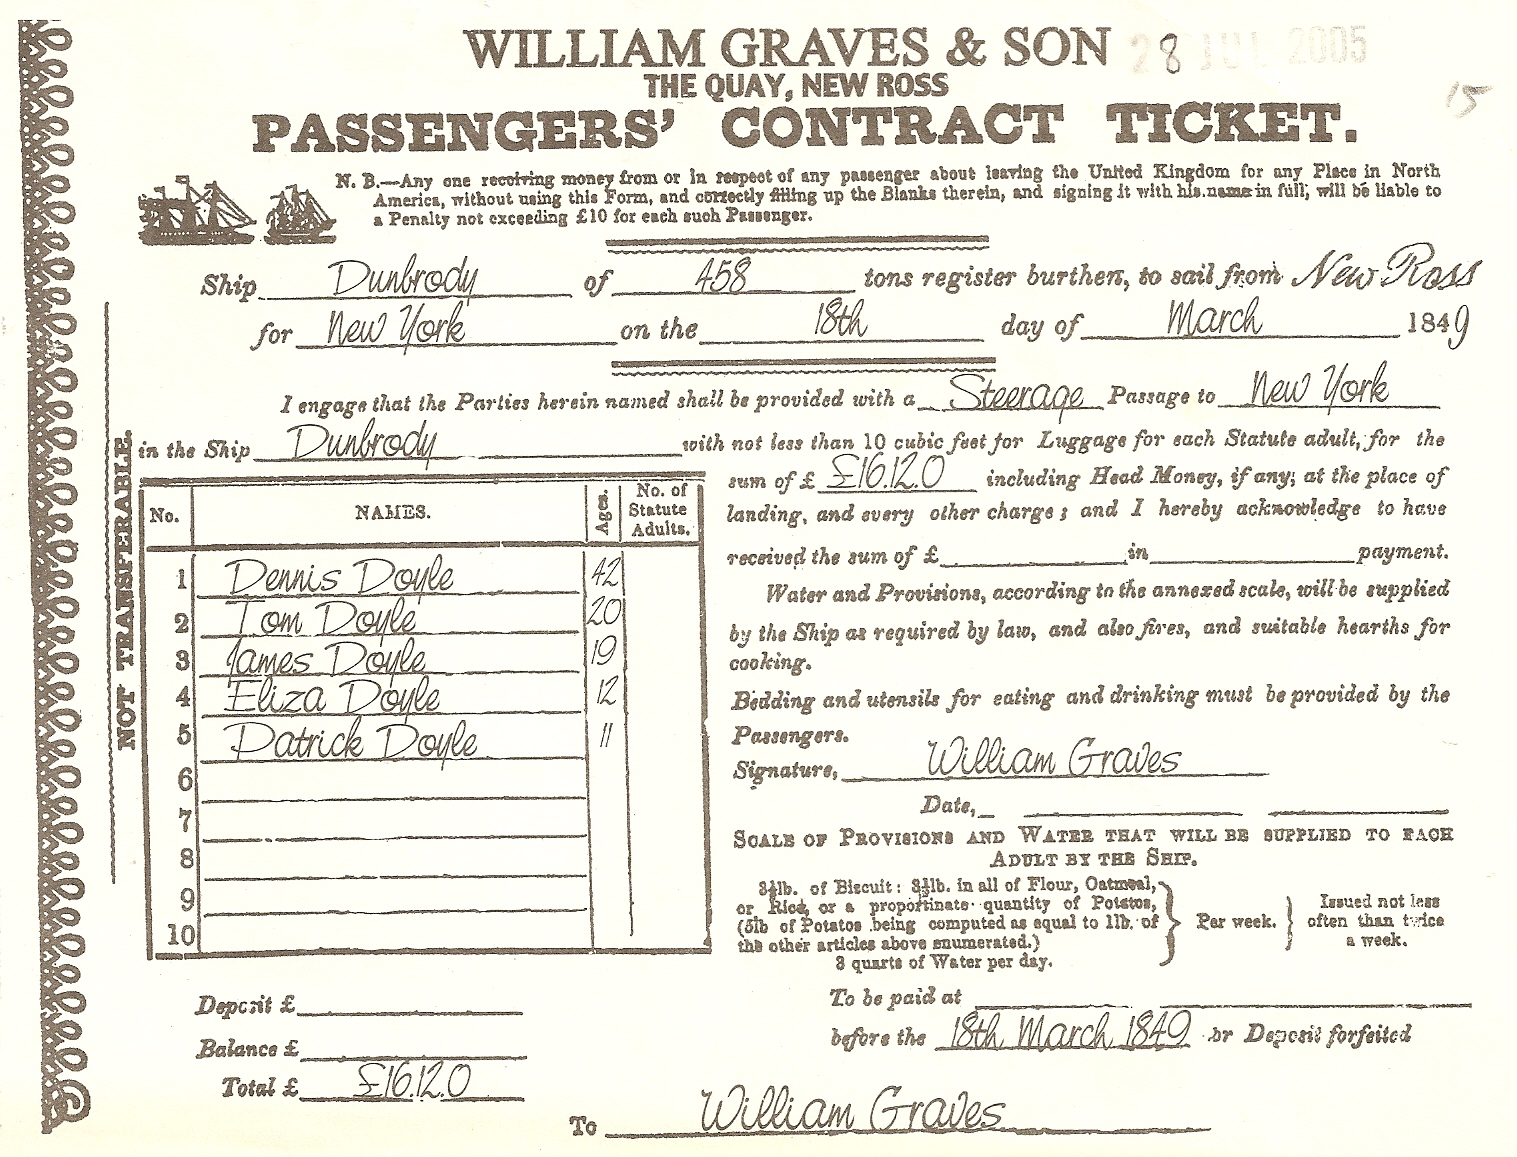 WILLIAM GRAVES & SON 28 JUL 2005
THE QUAY, NEW ROSS
15
PASSENGERS' CONTRACT TICKET.
N. B.—Any one receiving money from or in respect of any passenger about leaving the United Kingdom for any Place in North
America, without using this Form, and correctly filling up the Blanks therein, and signing it with his name in full, will be liable to
a Penalty not exceeding £10 for each such Passenger.
Ship Dunbrody of 458 tons register burthen, to sail from New Ross
for New York on the 18th day of March 1849
I engage that the Parties herein named shall be provided with a Steerage Passage to New York
in the Ship Dunbrody with not less than 10 cubic feet for Luggage for each Statute adult, for the
sum of £ £16.12.0 including Head Money, if any, at the place of
landing, and every other charge; and I hereby acknowledge to have
received the sum of £ in payment.
Water and Provisions, according to the annexed scale, will be supplied
by the Ship as required by law, and also fires, and suitable hearths for
cooking.
Bedding and utensils for eating and drinking must be provided by the
Passengers.
Signature, William Graves
Date,
NOT TRANSFERABLE.
No. NAMES. Ages. No. of Statute Adults.
1 Dennis Doyle 42
2 Tom Doyle 20
3 James Doyle 19
4 Eliza Doyle 12
5 Patrick Doyle 11
6
7
8
9
10
SCALE OF PROVISIONS AND WATER THAT WILL BE SUPPLIED TO EACH
ADULT BY THE SHIP.
3½lb. of Biscuit: 3½lb. in all of Flour, Oatmeal,
or Rice, or a proportinate quantity of Potatos,
(5lb of Potatos being computed as equal to 1lb. of
the other articles above enumerated.)
3 quarts of Water per day.
Per week.
Issued not less
often than twice
a week.
Deposit £
Balance £
Total £ £16.12.0
To be paid at
before the 18th March 1849 or Deposit forfeited
To William Graves